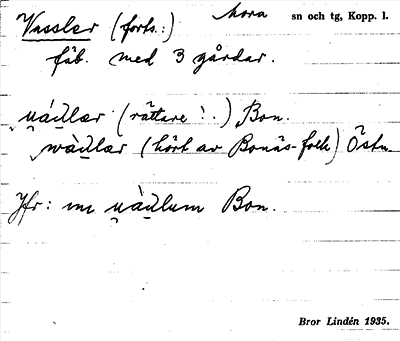 Vassler (forts.:) Mora sn och tg, Kopp. l.
fäb. med 3 gårdar.
u̯àd̲lær (rättare !.) Bon.
wàd̲lær (hört av Bonäs-folk) Östn.
Jfr: nu u̯àd̲lum Bon.
Bror Lindén 1935.